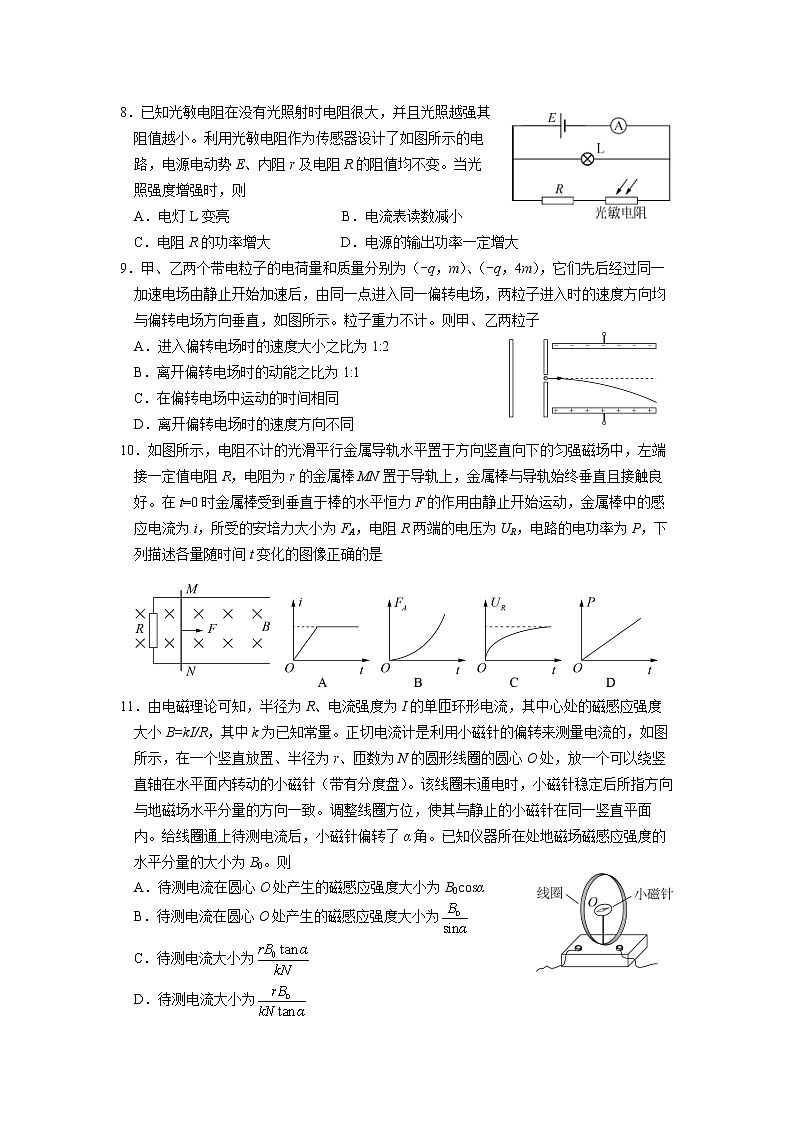 8．已知光敏电阻在没有光照射时电阻很大，并且光照越强其
阻值越小。利用光敏电阻作为传感器设计了如图所示的电
路，电源电动势 E、内阻 r 及电阻 R 的阻值均不变。当光
照强度增强时，则
A．电灯 L 变亮 B．电流表读数减小
C．电阻 R 的功率增大 D．电源的输出功率一定增大
E A
L
R
光敏电阻
9．甲、乙两个带电粒子的电荷量和质量分别为（-q，m）、（-q，4m），它们先后经过同一
加速电场由静止开始加速后，由同一点进入同一偏转电场，两粒子进入时的速度方向均
与偏转电场方向垂直，如图所示。粒子重力不计。则甲、乙两粒子
A．进入偏转电场时的速度大小之比为 1:2
B．离开偏转电场时的动能之比为 1:1
C．在偏转电场中运动的时间相同
D．离开偏转电场时的速度方向不同
10．如图所示，电阻不计的光滑平行金属导轨水平置于方向竖直向下的匀强磁场中，左端
接一定值电阻 R，电阻为 r 的金属棒 MN 置于导轨上，金属棒与导轨始终垂直且接触良
好。在 t=0 时金属棒受到垂直于棒的水平恒力 F 的作用由静止开始运动，金属棒中的感
应电流为 i，所受的安培力大小为 FA，电阻 R 两端的电压为 UR，电路的电功率为 P，下
列描述各量随时间 t 变化的图像正确的是
M
R F B
N
i O t A
FA O t B
UR O t C
P O t D
11．由电磁理论可知，半径为 R、电流强度为 I 的单匝环形电流，其中心处的磁感应强度
大小 B=kI/R，其中 k 为已知常量。正切电流计是利用小磁针的偏转来测量电流的，如图
所示，在一个竖直放置、半径为 r、匝数为 N 的圆形线圈的圆心 O 处，放一个可以绕竖
直轴在水平面内转动的小磁针（带有分度盘）。该线圈未通电时，小磁针稳定后所指方向
与地磁场水平分量的方向一致。调整线圈方位，使其与静止的小磁针在同一竖直平面
内。给线圈通上待测电流后，小磁针偏转了 α 角。已知仪器所在处地磁场磁感应强度的
水平分量的大小为 B₀。则
A．待测电流在圆心 O 处产生的磁感应强度大小为 B₀cosα
B．待测电流在圆心 O 处产生的磁感应强度大小为 B₀/sinα
C．待测电流大小为 rB₀ tanα/kN
D．待测电流大小为 rB₀/kN tanα
线圈 O 小磁针